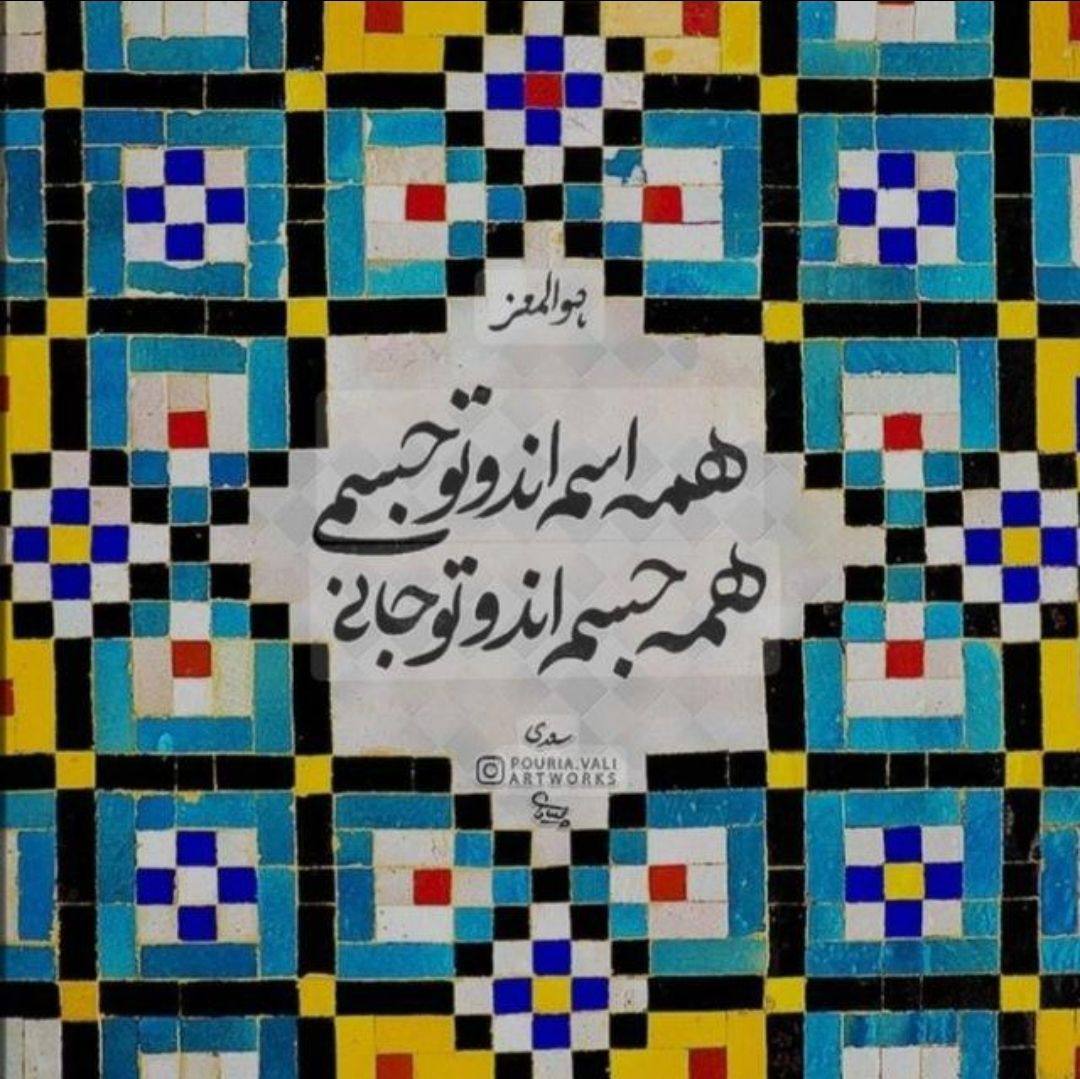 هوالمعز
همه اسم اند و تو جسمی
همه جسم اند و تو جانی
سعدی
POURIA.VALI
ARTWORKS